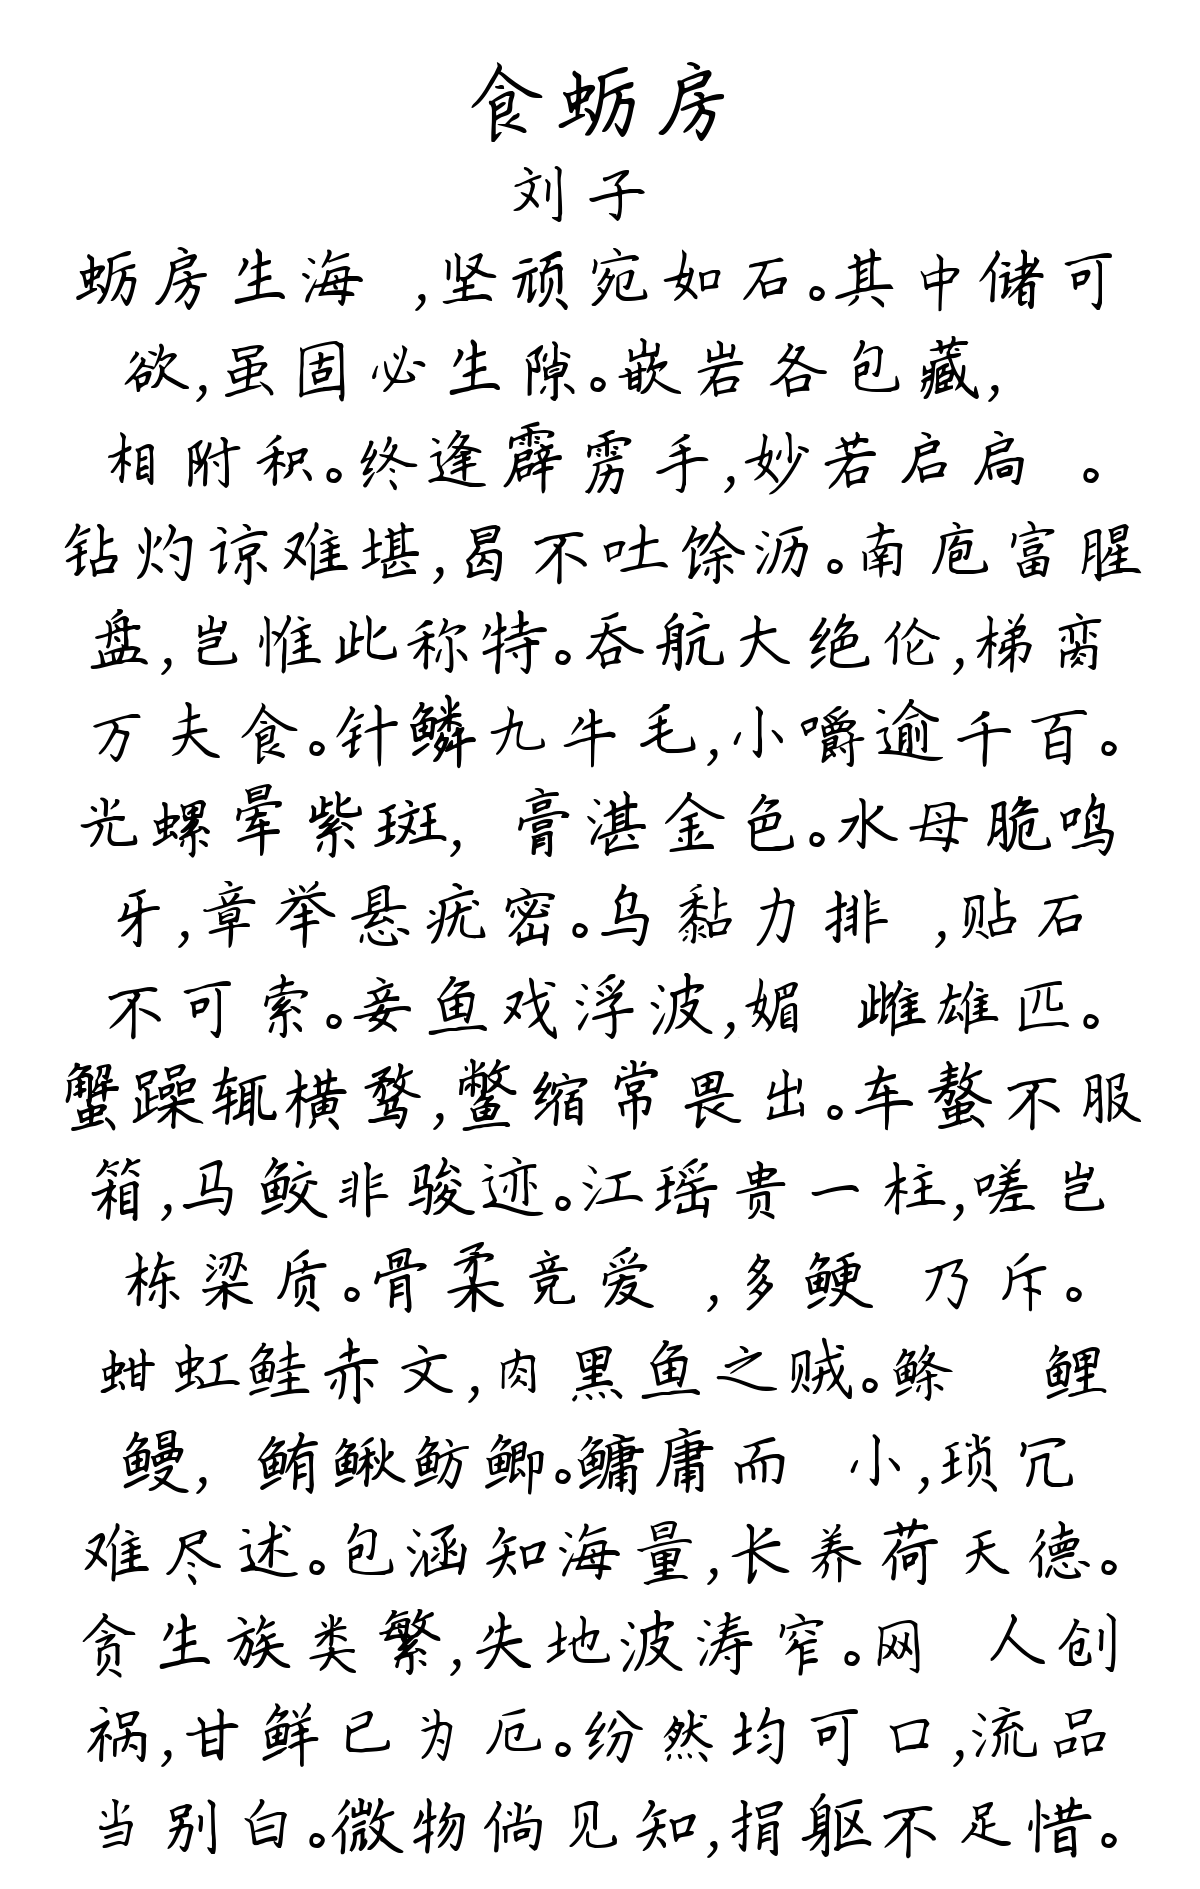 食蛎房
刘子
蛎房生海 ,坚顽宛如石。其中储可
欲,虽固必生隙。嵌岩各包藏,
相附积。终逢霹雳手,妙若启扃 。
钻灼谅难堪,曷不吐馀沥。南庖富腥
盘,岂惟此称特。吞航大绝伦,梯脔
万夫食。针鳞九牛毛,小嚼逾千百。
光螺晕紫斑, 膏湛金色。水母脆鸣
牙,章举悬疣密。乌黏力排 ,贴石
不可索。妾鱼戏浮波,媚 雌雄匹。
蟹躁辄横鹜,鳖缩常畏出。车螯不服
箱,马鲛非骏迹。江瑶贵一柱,嗟岂
栋梁质。骨柔竞爱 ,多鲠 乃斥。
蚶虹鲑赤文,肉黑鱼之贼。鲦 鲤
鳗, 鲔鳅鲂鲫。鳙庸而 小,琐冗
难尽述。包涵知海量,长养荷天德。
贪生族类繁,失地波涛窄。网 人创
祸,甘鲜已为厄。纷然均可口,流品
当别白。微物倘见知,捐躯不足惜。